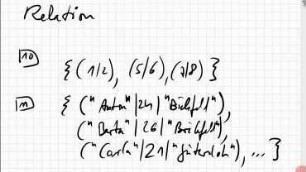 Relation
10 { (1|2), (5/6), (7/8) }
n { ("Anton"|24|"Bielefeld"),
("Berta"|26|"Bielefeld"),
("Carla"|21|"Gütersloh"), ... }